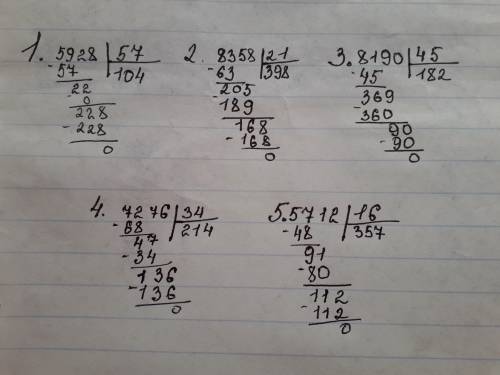 1. 5928 | 57
- 57 | 104
22
- 0
228
- 228
0
2. 8358 | 21
- 63 | 398
205
- 189
168
- 168
0
3. 8190 | 45
- 45 | 182
369
- 360
90
- 90
0
4. 7276 | 34
- 68 | 214
47
- 34
136
- 136
0
5. 5712 | 16
- 48 | 357
91
- 80
112
- 112
0